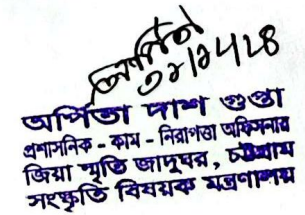 অর্পিতা
০২/১২/২৪
অর্পিতা দাশ গুপ্তা
প্রশাসনিক - কাম - নিরাপত্তা অফিসার
জিয়া স্মৃতি জাদুঘর, চট্টগ্রাম
সংস্কৃতি বিষয়ক মন্ত্রণালয়